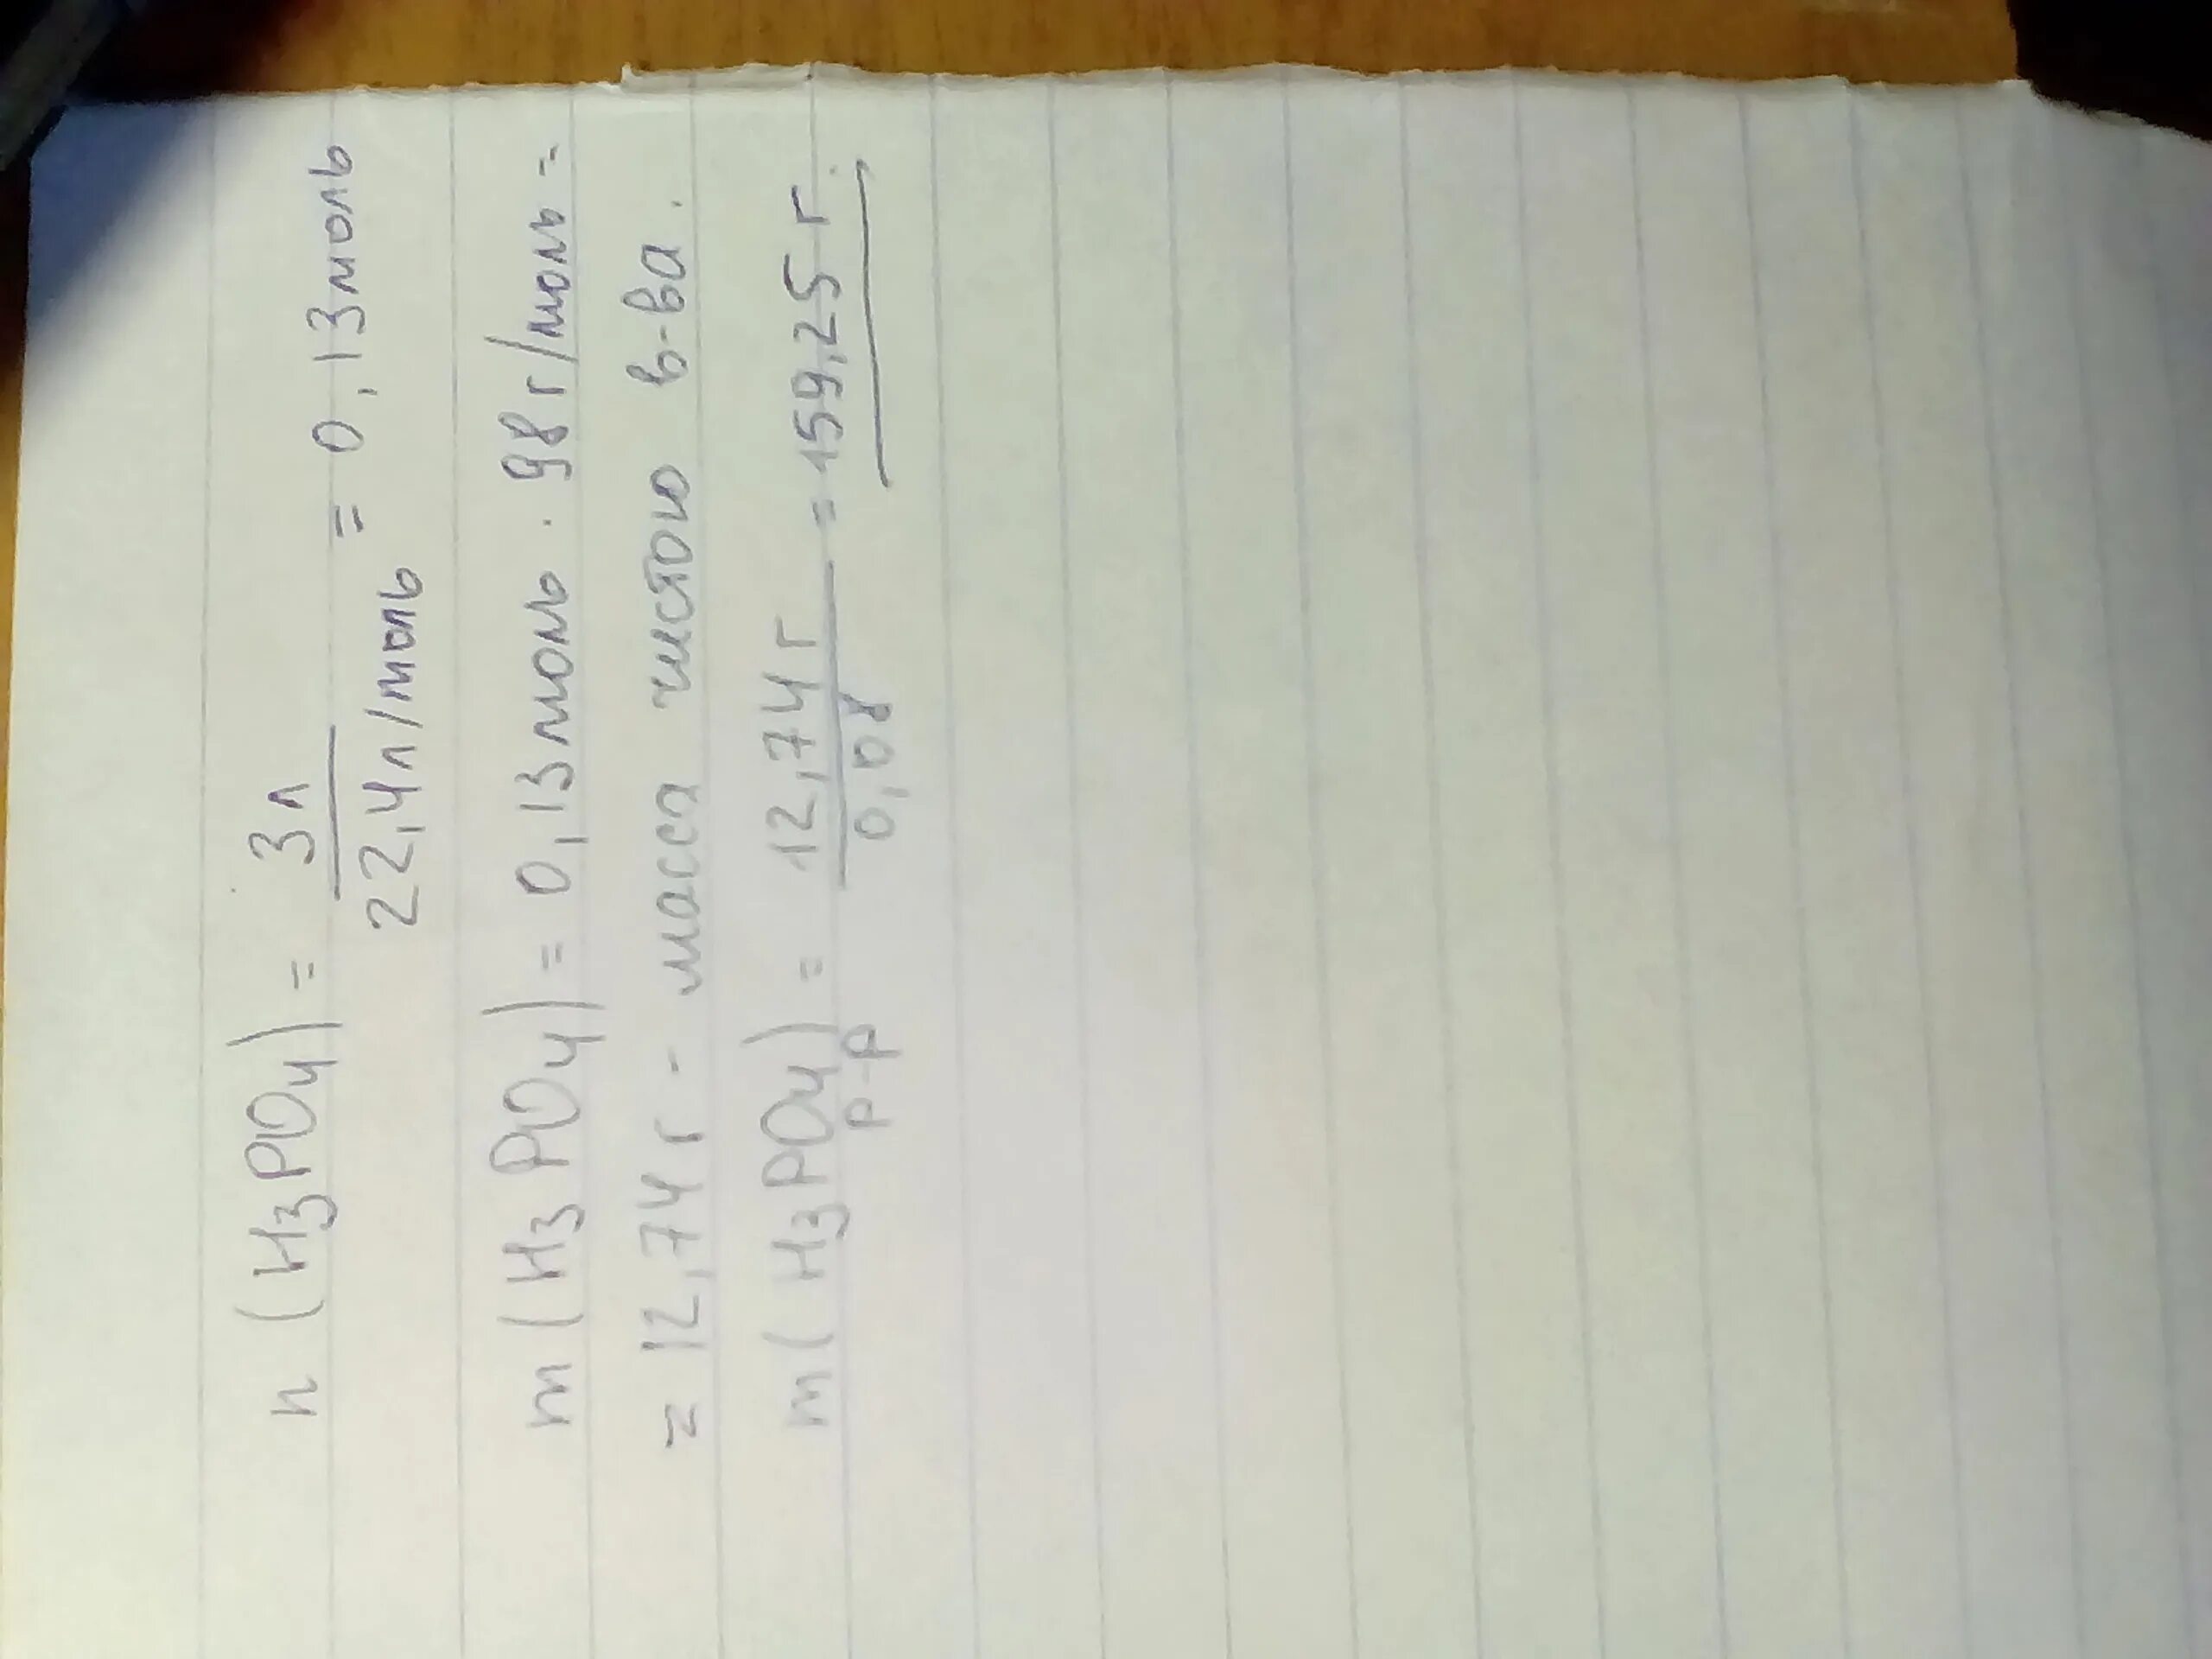 n (H3PO4) = 3 л / 22,4 л/моль = 0,13 моль
m (H3PO4) = 0,13 моль · 98 г/моль =
= 12,74 г - масса чистого в-ва.
m (H3PO4) р-р = 12,74 г / 0,08 = 159,25 г.